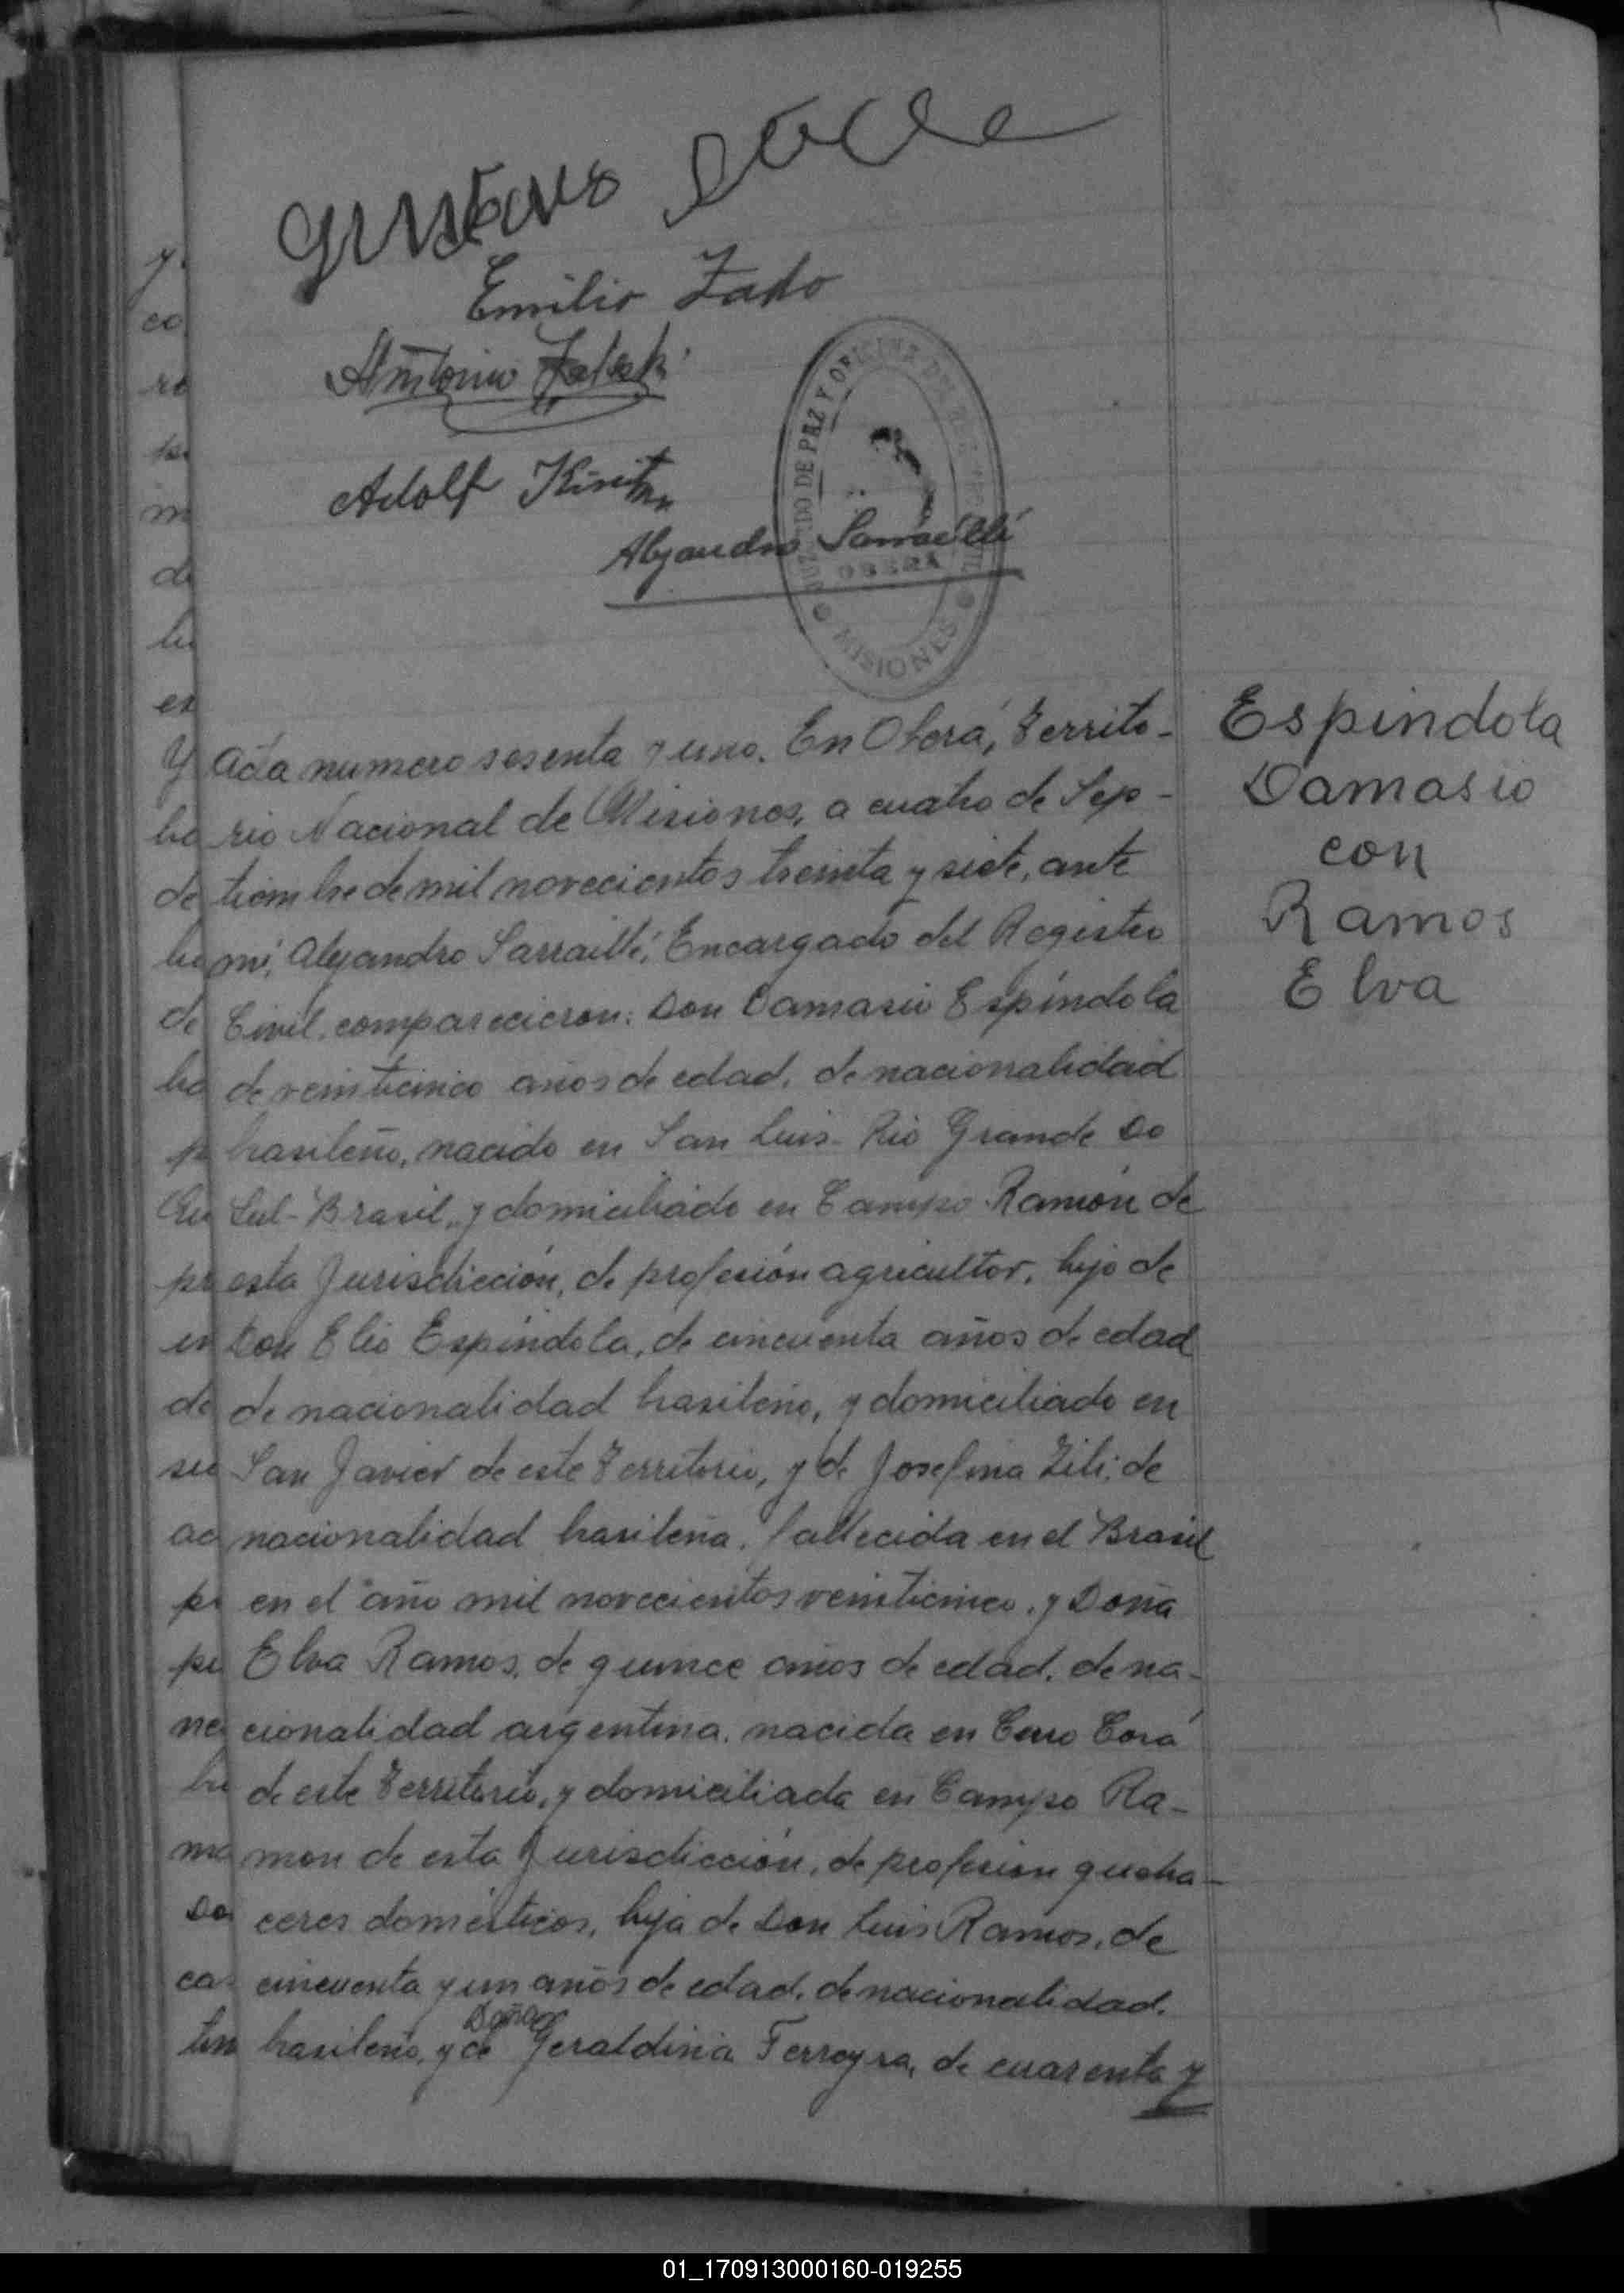 Gustavo
Emilio Zado
Antonio
Adolf
JUZGADO DE PAZ Y OFICINA DEL REGISTRO CIVIL
Alejandro Sarraillé
OBERÁ
MISIONES
Acta numero sesenta y uno. En Oberá, Territo-
rio Nacional de Misiones, a cuatro de Sep-
tiembre de mil novecientos treinta y siete, ante
mi, Alejandro Sarraillé, Encargado del Registro
Civil, comparecieron: Don Damasio Espíndola
de veinticinco años de edad, de nacionalidad
brasileño, nacido en San Luis - Rio Grande Do
Sul - Brasil, y domiciliado en Campo Ramón de
esta Jurisdicción, de profesión agricultor, hijo de
Don Elio Espíndola, de cincuenta años de edad
de nacionalidad brasileño, y domiciliado en
San Javier de este Territorio, y de Josefina Zili, de
nacionalidad brasileña, fallecida en el Brasil
en el año mil novecientos veinticinco, y Doña
Elva Ramos, de quince años de edad, de na-
cionalidad argentina, nacida en Cerro Corá
de este Territorio, y domiciliada en Campo Ra-
mon de esta Jurisdicción, de profesion queha-
ceres domésticos, hija de Don Luis Ramos, de
cincuenta y un años de edad, de nacionalidad
brasileño, y de Doña Geraldina Ferreyra, de cuarenta y
Espindola
Damasio
con
Ramos
Elva
01_170913000160-019255